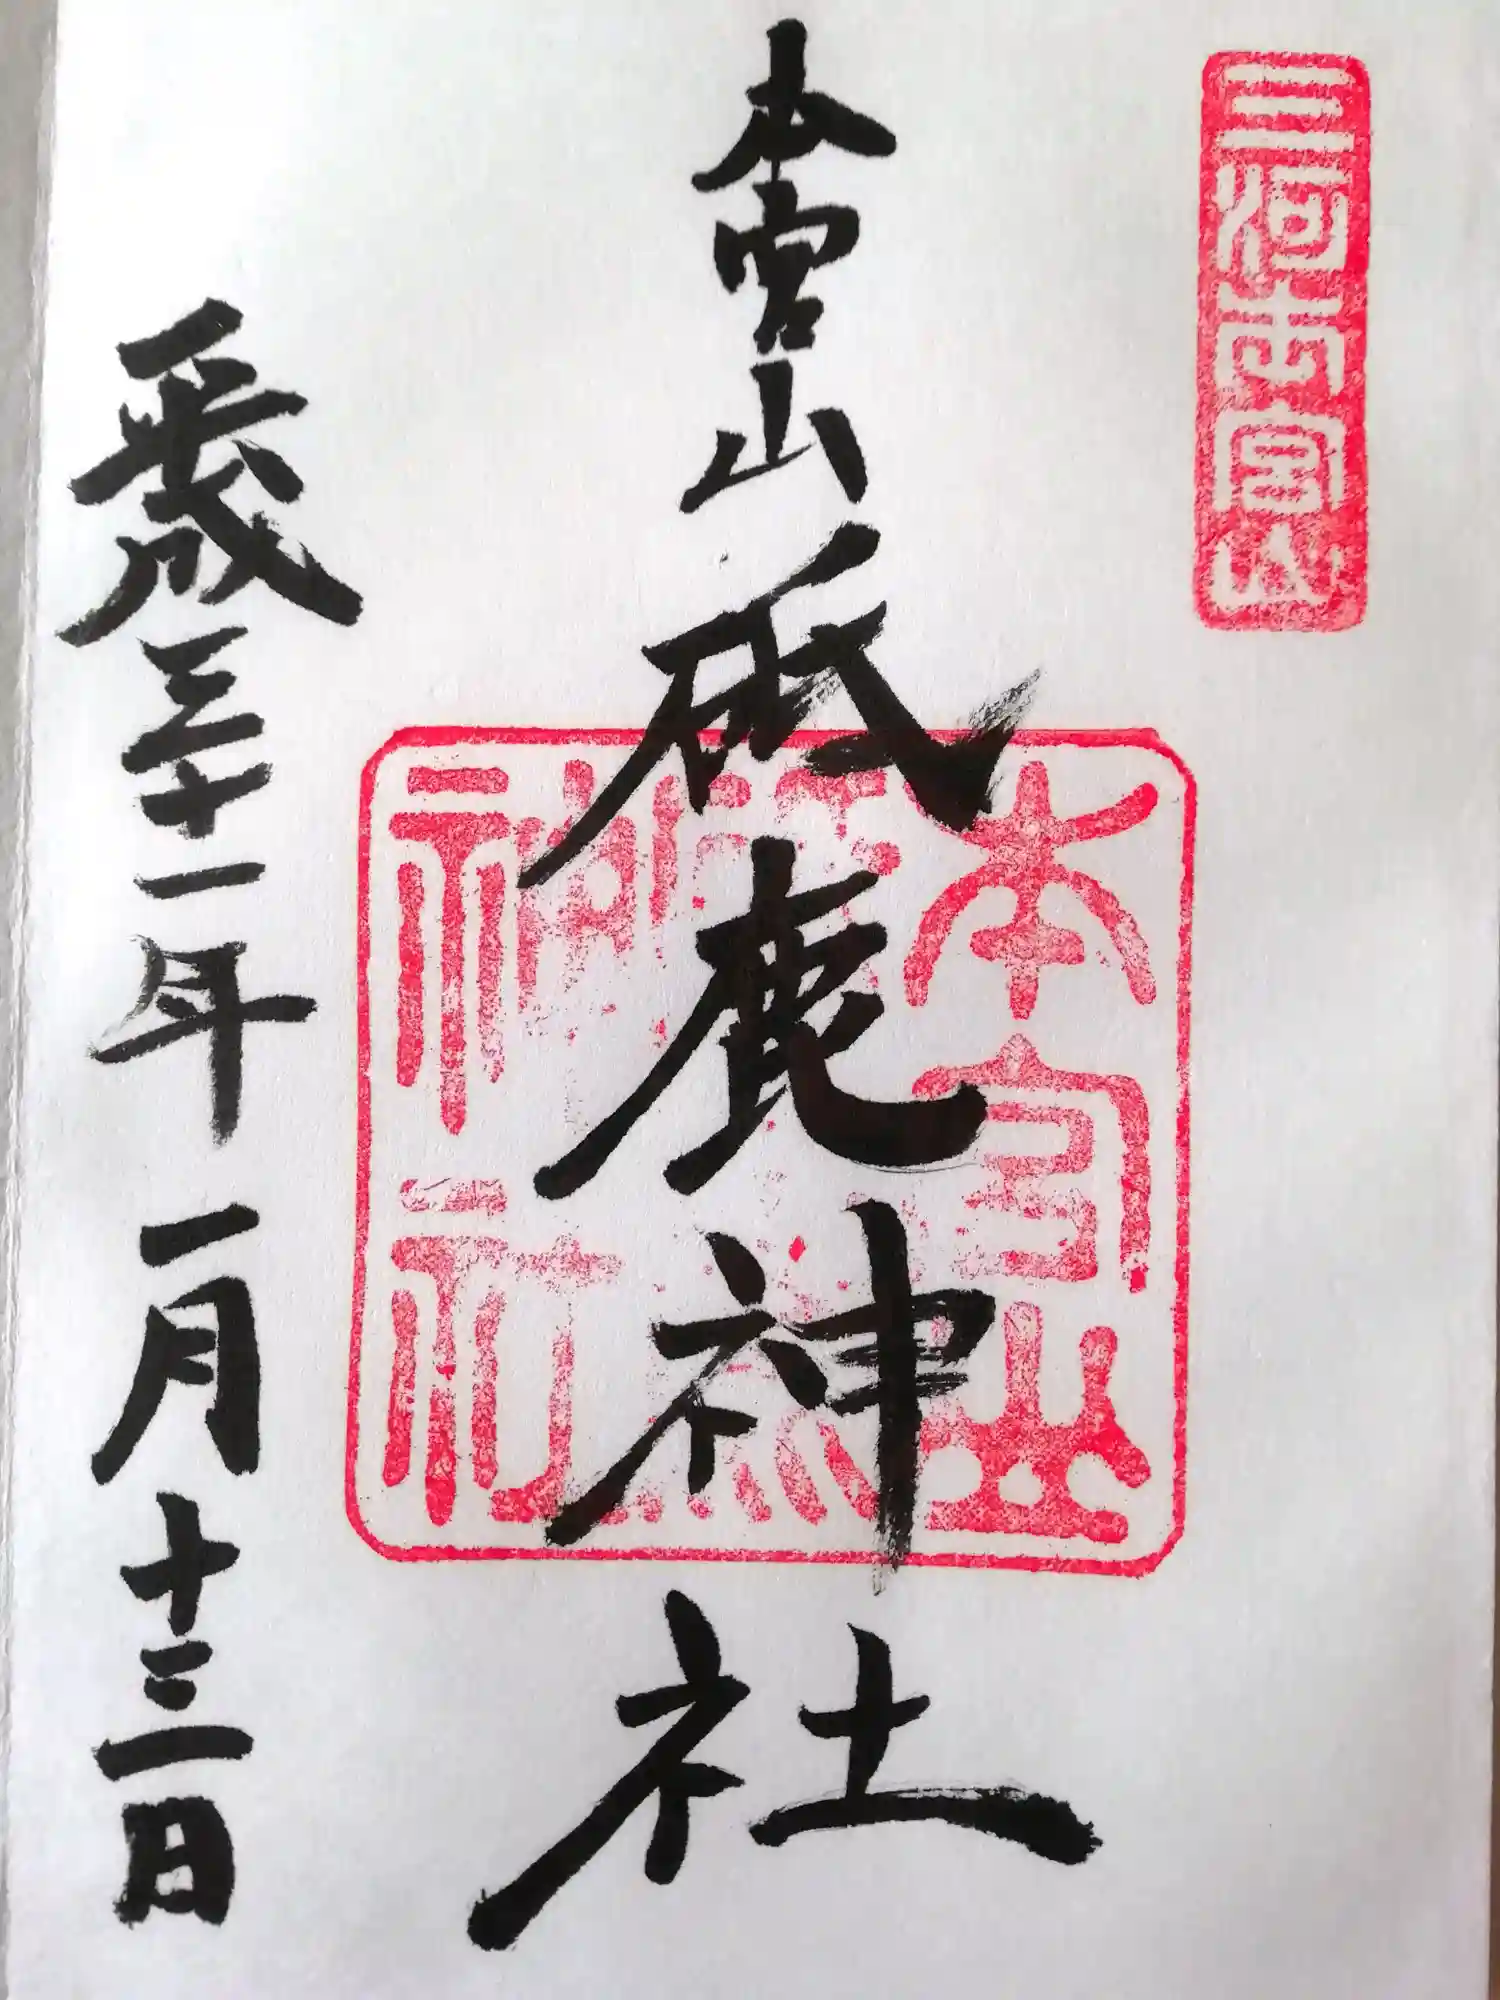 三河本宮山
本宮山砥鹿神社
本宮山
砥鹿
神社
平成三十一年一月十三日